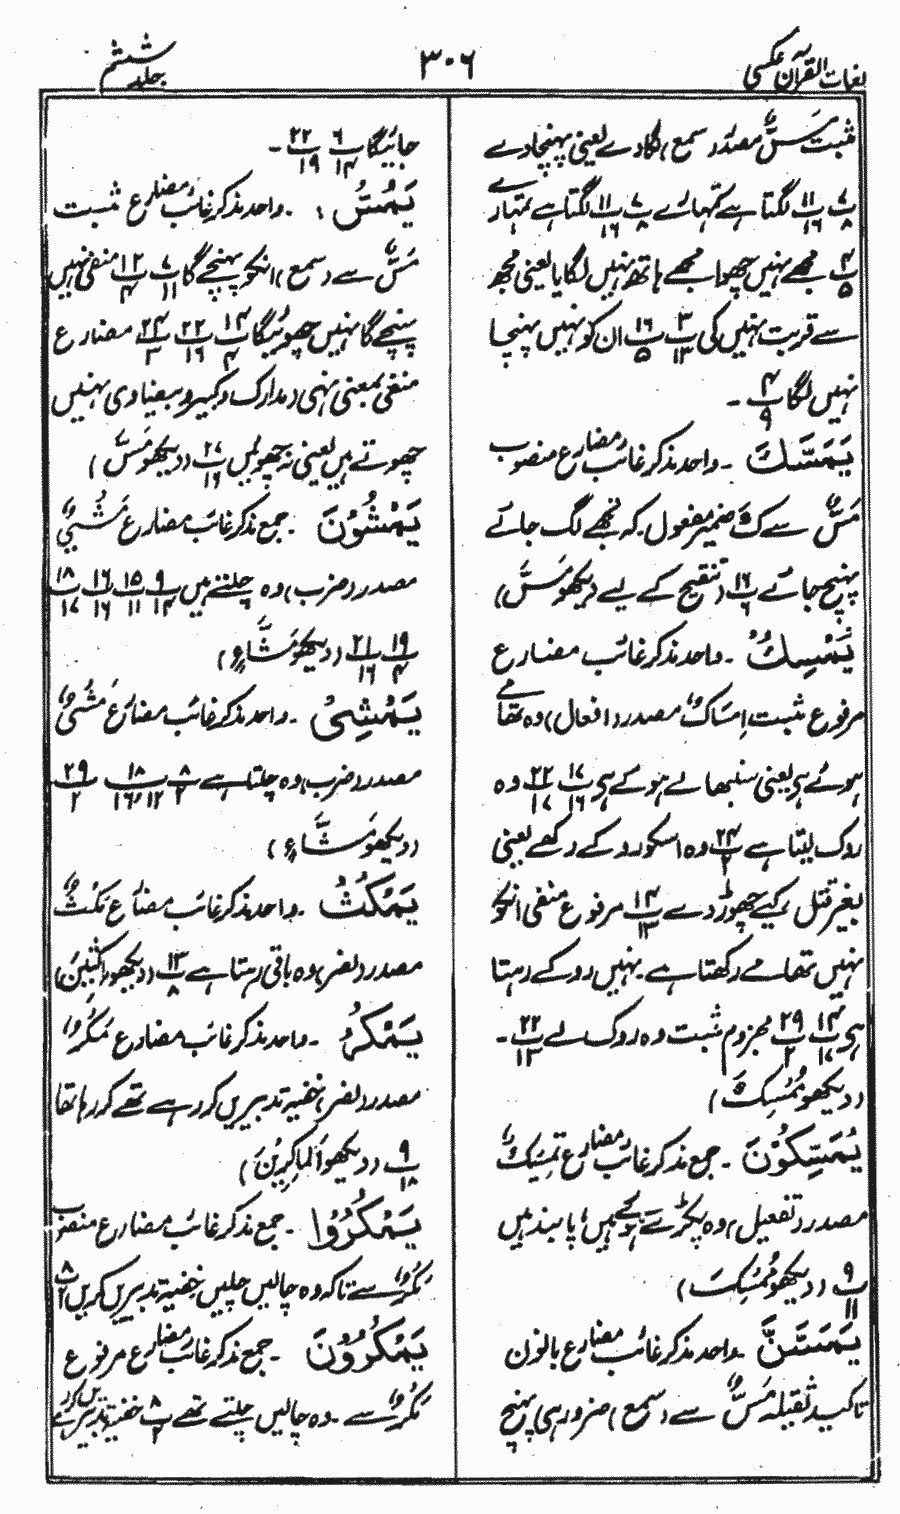 لغات القرآن عکسی
۳۰۶
جلد ششم
مثبت مَسٌّ مصدر (سمع) لگادے یعنی پہنچادے
پ۷/۸ پ۱۱/۱۶ لگتا ہے تمہارے پ۷/۸ پ۱۱/۱۶ لگتا ہے تمہارے
پ۴/۵ مجھے نہیں چھوا مجھے ہاتھ نہیں لگایا یعنی مجھ
سے قربت نہیں کی پ۳/۱۳ پ۱۶/۵ ان کو نہیں پہنچا
نہیں لگا پ۴/۹ ۔
یَمَسَّكَ ۔ واحد مذکر غائب مضارع منصوب
مَسٌّ سے كَ ضمیر مفعول ۔ کہ تجھے لگ جائے
پہنچ جائے پ۱۶/۶ (تنقیح کے لیے دیکھو مَسَّ)
یُمْسِكُ ۔ واحد مذکر غائب مضارع
مرفوع مثبت اِمْسَاكٌ مصدر (افعال) وہ تھامے
ہوئے ہے یعنی سنبھالے ہوئے ہے پ۱۷/۱۶ پ۲۲/۱۷ وہ
روک لیتا ہے پ۲۴/۲ وہ اسکو روکے رکھے یعنی
بغیر قتل کیے چھوڑ دے پ۱۴/۱۳ مرفوع منفی انکو
نہیں تھامے رکھتا ہے ۔ نہیں روکے رہتا
ہے پ۱۴/۱۷ پ۲۹/۲ مجزوم مثبت وہ روک لے پ۲۲/۱۳ ۔
(دیکھو مُمْسِكَ)
یُمَسِّكُوْنَ ۔ جمع مذکر غائب مضارع تَمْسِیْكٌ
مصدر (تفعیل) وہ پکڑے ہوئے ہیں، پابند ہیں
پ۹/۱۱ (دیکھو مُمْسِكَ)
یَمَسَّنَّ ۔ واحد مذکر غائب مضارع بانون
تاکید ثقیلہ مَسٌّ سے (سمع) ضرور ہی پہنچ
جائیگا پ۶/۱۴ پ۲۲/۱۹ ۔
یَمَسُّ: ۔ واحد مذکر غائب مضارع مثبت
مَسٌّ سے (سمع) انکو پہنچے گا پ۷/۱۱ پ۱۲/۴ منفی نہیں
پہنچے گا نہیں چھوئیگا پ۱۴/۴ پ۲۲/۱۶ پ۲۴/۳ مضارع
منفی بمعنی نہی (مدارک و کبیر و بیضاوی) نہیں
چھوتے ہیں یعنی نہ چھوئیں پ۲۷/۱۶ (دیکھو مَسَّ)
یَمْشُوْنَ ۔ جمع مذکر غائب مضارع مَشْیٌ
مصدر (ضرب) وہ چلتے ہیں پ۹/۱۴ پ۱۵/۱۱ پ۱۶/۱۶ پ۱۸/۱۷
پ۱۹/۴ پ۲۱/۱۶ (دیکھو مَشَّاءٍ)
یَمْشِیْ ۔ واحد مذکر غائب مضارع مَشْیٌ
مصدر (ضرب) وہ چلتا ہے پ۸/۲ پ۱۸/۱۲،۱۶ پ۲۹/۲
(دیکھو مَشَّاءٍ)
یَمْكُثُ ۔ واحد مذکر غائب مضارع مَكْثٌ
مصدر (نصر) وہ باقی رہتا ہے پ۱۳/۸ (دیکھو مَاكِثِیْنَ)
یَمْكُرُ ۔ واحد مذکر غائب مضارع مَكْرٌ
مصدر (نصر) خفیہ تدبیریں کر رہے تھے کر رہا تھا
پ۹/۱۸ (دیکھو اَلْمَاكِرِیْنَ)
یَمْكُرُوْا ۔ جمع مذکر غائب مضارع منصوب
مَكْرٌ سے تاکہ وہ چالیں چلیں خفیہ تدبیریں کریں پ۸/۲
یَمْكُرُوْنَ ۔ جمع مذکر غائب مضارع مرفوع
مَكْرٌ سے ۔ وہ چالیں چلتے تھے پ۸/۲ خفیہ تدبیریں کر رہے